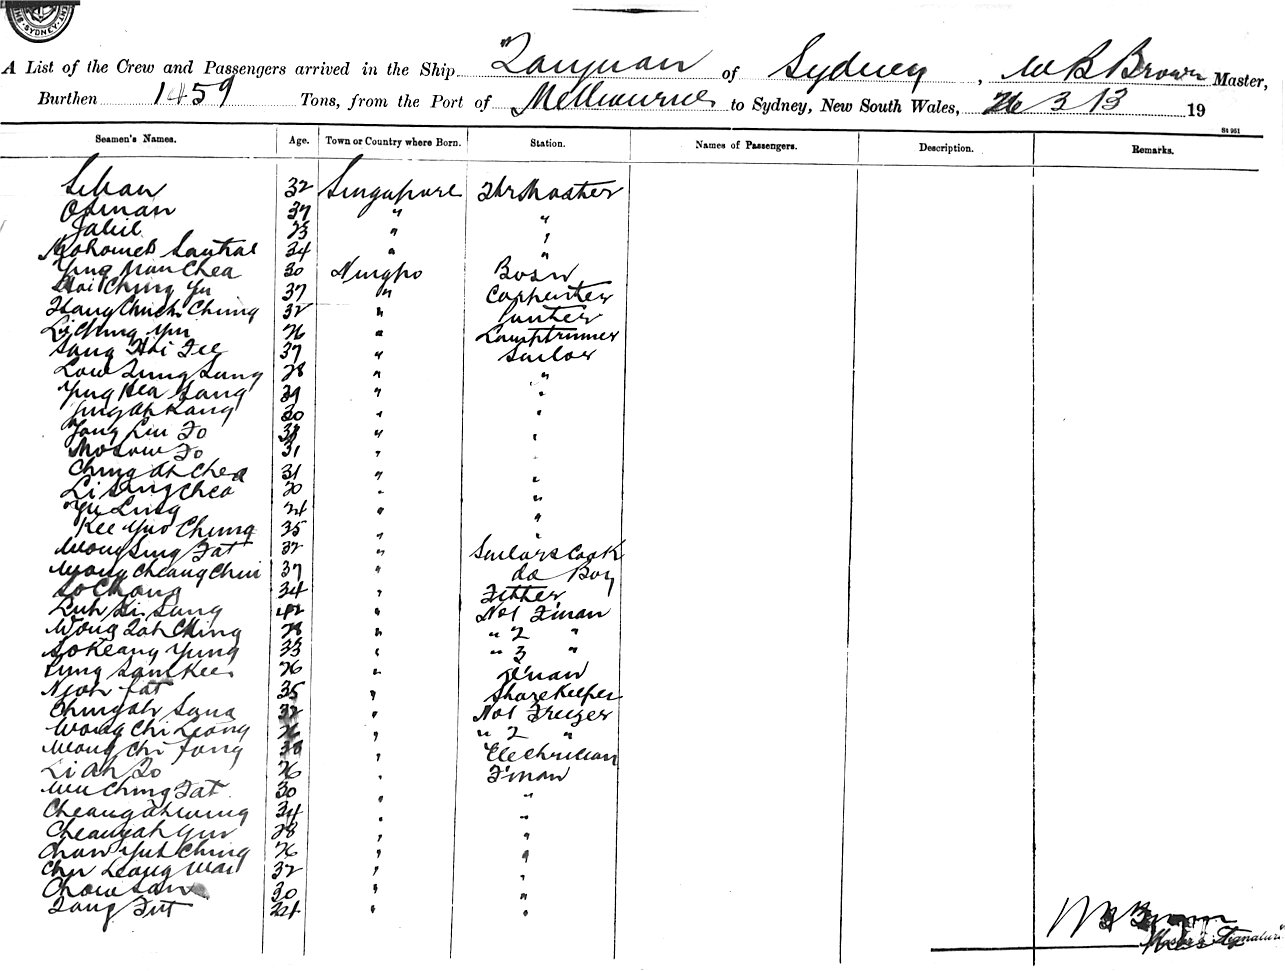 SYDNEY
A List of the Crew and Passengers arrived in the Ship "Taiyuan of Sydney, W B Brown Master,
Burthen 1459 Tons, from the Port of Melbourne to Sydney, New South Wales, 26 3 13 19
St 961
Seamen's Names. Age. Town or Country where Born. Station. Names of Passengers. Description. Remarks.
32 Singapore
Osman 37 "
23 "
34 " "
30 Ningpo Bosn
Hai Ching Yu 37 " Carpenter
32 "
Li Ching 26 " Lamptrimmer
Sang Hai 37 " Sailor
Low Sung 28 " "
Ying Hea Sang "
Ying Ah Kang 30 " "
Yang Lin To " "
To 31 " "
Ching Ah Chea 31 " "
Li Sing Chea 20 " "
Yu Ling 24 " "
Kee Yuo Chung 35 " "
Wong Sing Fat 32 " Sailors Cook
Wong Cheang Chui 37 " do Boy
So Chong 34 " Fitter
Luk Li Sang 42 " No1 F'man
Wong Tah Ching 28 " " 2 "
So Keang Yung 33 " " 3 "
Lung Sam Kee 26 " F'man
Fat 35 " Storekeeper
Ching Ah Sang 32 " No1 Greaser
Wong Chi Leong 26 " " 2 "
Wong Chi Fong 38 " Electrician
Li Ah To 26 " F'man
Wu Ching Fat 30 " "
Cheang 34 " "
Cheang Ah Yuv 28 " "
Chan Yuk Ching 26 " "
Chu Leang Wai 32 " "
Chow San 30 " "
Tang Fut 24 " "
W B Brown
Master's Signature